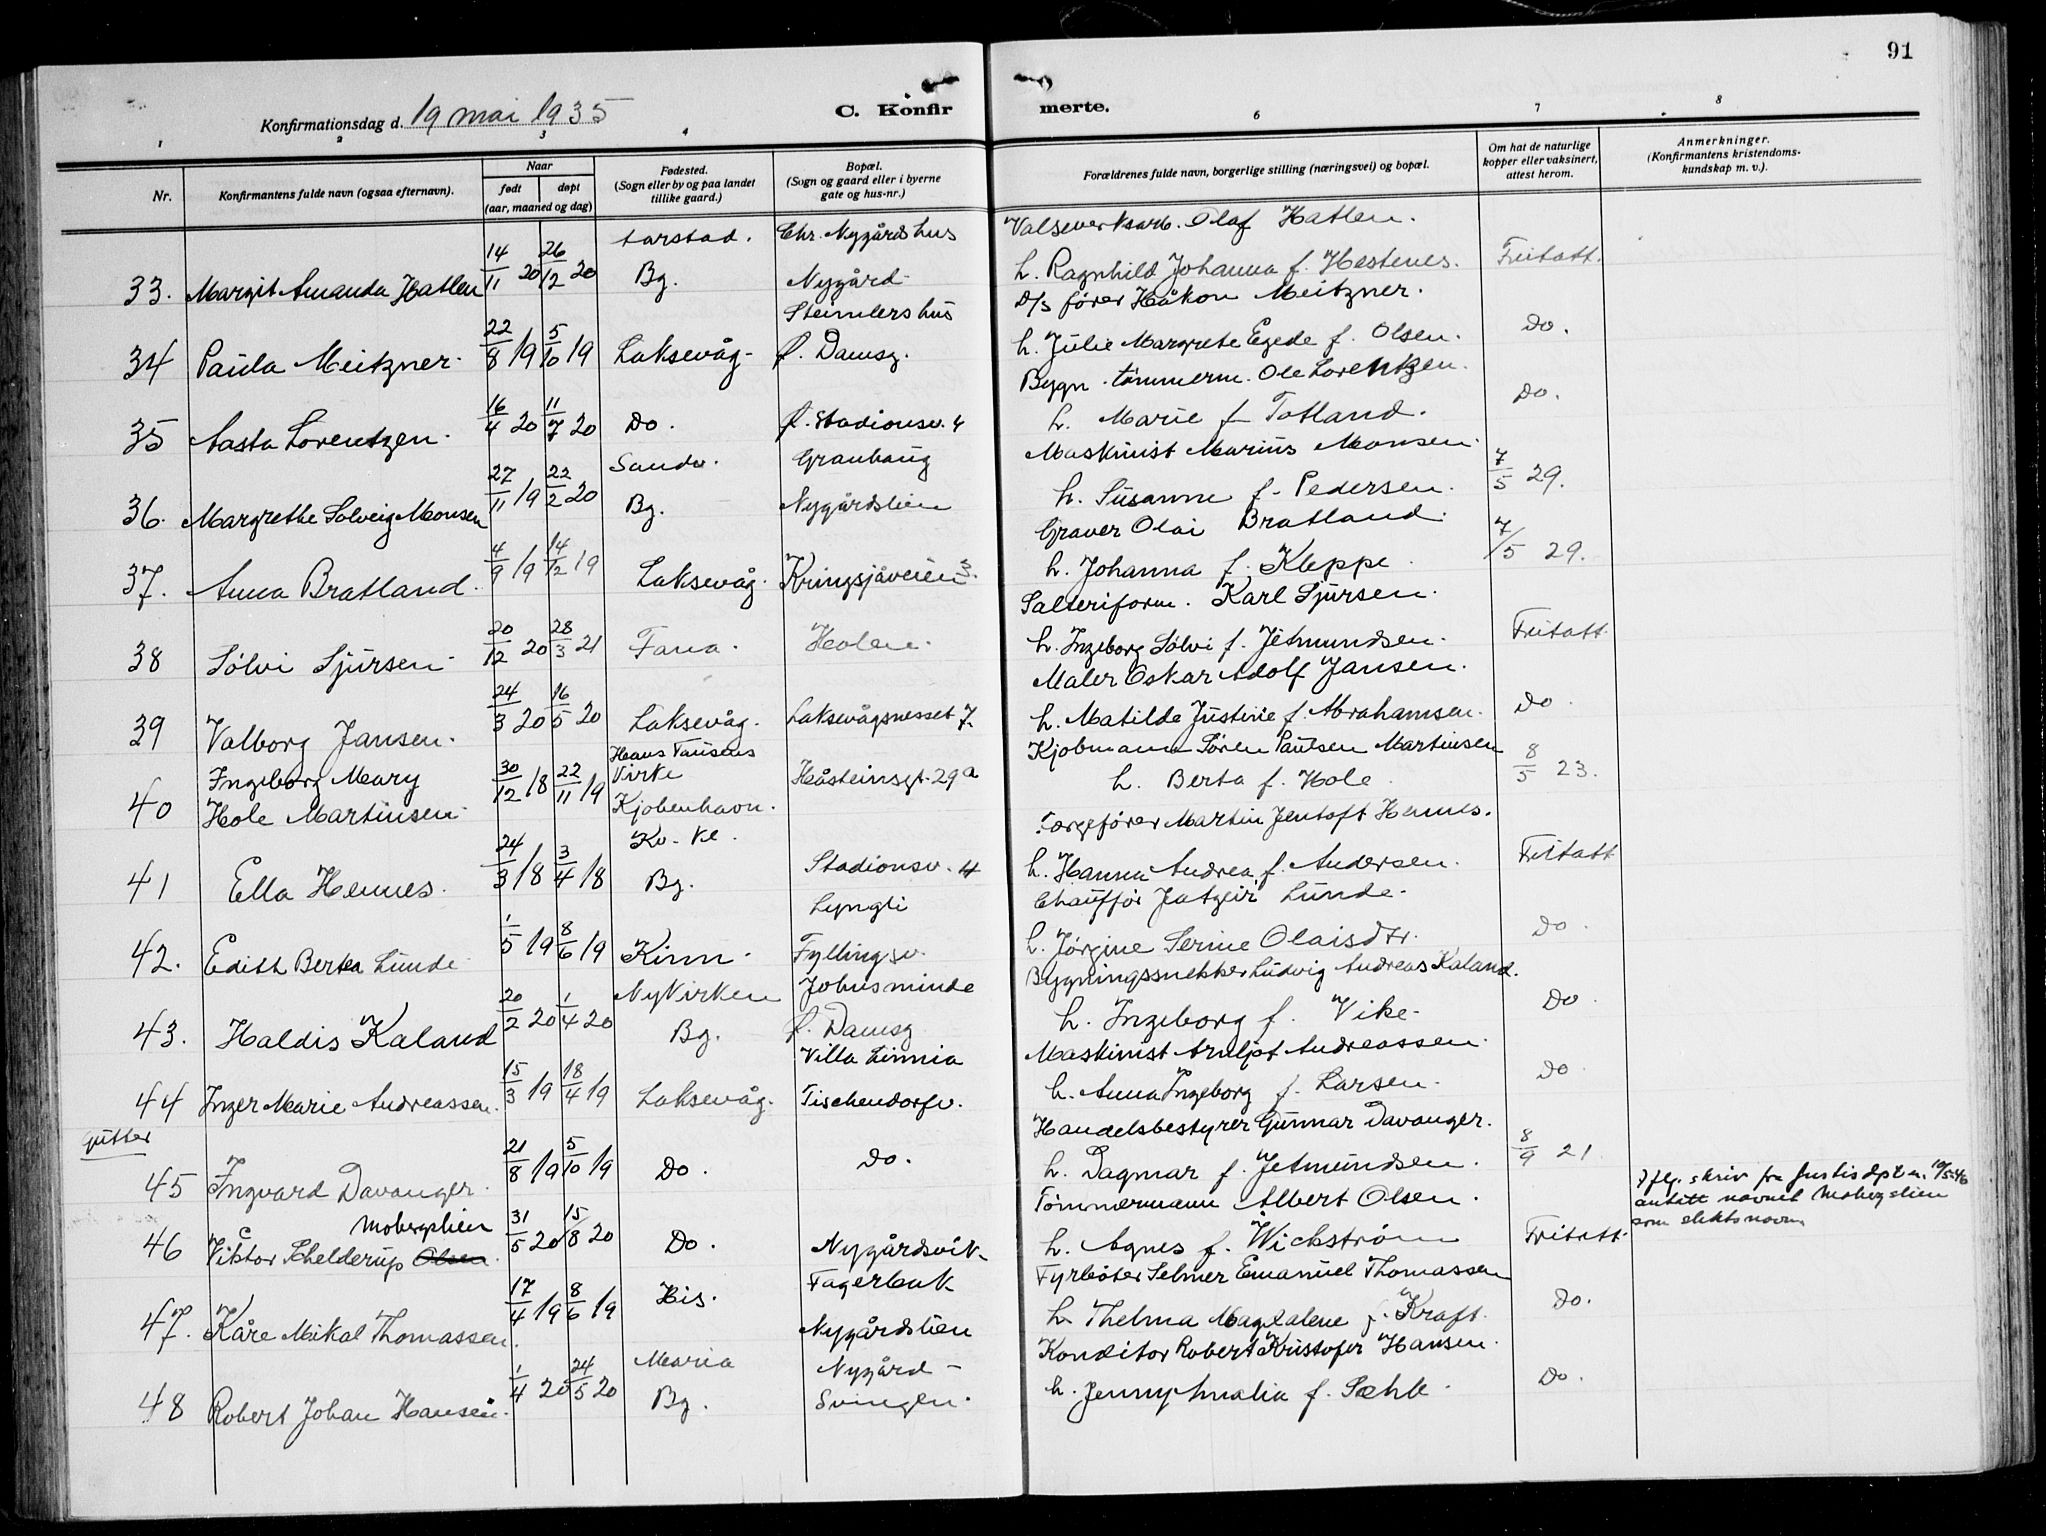 91
Konfirmationsdag d. 19 mai 1935 C. Konfirmerte.
1 2 3 4 6 7 8
Nr.
Konfirmantens fulde navn (ogsaa efternavn).
Naar
født døpt
(aar, maaned og dag)
Fødested.
(Sogn eller by og paa landet
tillike gaard.)
Bopæl.
(Sogn og gaard eller i byerne
gate og hus-nr.)
Forældrenes fulde navn, borgerlige stilling (næringsvei) og bopæl.
Om hat de naturlige
kopper eller vaksinert,
attest herom.
Anmerkninger.
(Konfirmantens kristendoms-
kundskap m. v.).
Aarstad. Chr. Nygårds hus Valseverksarb. Olaf Hatlen.
33. Margit Amanda Hatlen 14/11 20 26/12 20 Bg. Nygård h. Ragnhild Johanna f. Hestenes. Fritatt.
Steimlers hus D/s fører Håkon Meitzner.
34 Paula Meitzner 22/8 19 5/10 19 Laksevåg Ø. Damsg. h. Julie Margrete Egede f. Olsen. Do.
Bygn. tømmerm. Ole Lorentzen.
35 Aasta Lorentzen. 16/4 20 11/7 20 Do. Ø. Stadionsv. 4 h. Marie f. Totland. Do.
Sandv. Granhaug Maskinist Marius Monsen
36. Margrethe Solveig Monsen 27/11 19 22/2 20 Bg. Nygårdslien h. Susanne f. Pedersen. 7/5 29.
Graver Olai Bratland.
37. Anna Bratland. 4/9 19 14/12 19 Laksevåg. Kringsjåveien 3. h. Johanna f. Kleppe 7/5 29.
Salteriform. Karl Sjursen.
38 Sølvi Sjursen 20/12 20 28/3 21 Fana. Holen. h. Ingeborg Sølvi f. Jetmundsen. Fritatt.
Maler Oskar Adolf Jansen.
39 Valborg Jansen. 24/3 20 16/5 20 Laksevåg. Laksevågsnesset 7. h. Matilde Justine f. Abrahamsen. Do.
Hans Tausens Kjøbmann Søren Paulsen Martinsen
40 Ingeborg Mary 30/12 18 22/11 19 Kirke Håsteinsgt. 29a h. Berta f. Hole. 8/5 23.
Hole Martinsen Kjøbenhavn.
Færgefører Martin Jentoft Hennes.
Ko. Ke.
41 Ella Hennes. 24/3 18 3/4 18 Bg. Stadionsv. 4 h. Hanna Andrea f. Andersen. Fritatt
Lyngli Chauffør Jatgeir Lunde.
42. Edith Bertea Lunde 1/5 19 8/6 19 Kinn. Fyllingsv. h. Jørgine Serine Olaisdtr. Do.
Nykirken Johusminde Bygningssnekker Ludvig Andreas Kaland.
43. Haldis Kaland 20/2 20 1/4 20 Bg. Ø. Damsg h. Ingeborg f. Vike. Do.
Villa Linnia Maskinist Arnljot Andreassen.
44 Inger Marie Andreassen. 15/3 19 18/4 19 Laksevåg. Tischendorfv. h. Anna Ingeborg f. Larsen. Do
Gutter
Handelsbestyrer Gunnar Davanger.
45 Ingvard Davanger. 21/8 19 5/10 19 Do. Do. h. Dagmar f. Jetmundsen. 8/9 21.
Tømmermann Albert Olsen.
Mobergslien
46 Viktor Schelderup Olsen. 31/5 20 15/8 20 Do. Nygårdsvik h. Agnes f. Wickstrøm Fritatt.
Iflg. skriv fra Justisdpt. 10/5-46
antatt navnet Mobergslien
som slektsnavn
Fagerbak Fyrbøter Selmer Emanuel Thomassen
47. Kåre Mikal Thomassen. 17/4 19 8/6 19 His. Nygårdslien h. Thelma Magdalene f. Kraft. Do.
Konditor Robert Kristofer Hansen.
Maria Nygård-
48 Robert Johan Hansen. 1/4 20 24/5 20 Bg. Svingen. h. Jenny Amalia f. Sæhle. Do.